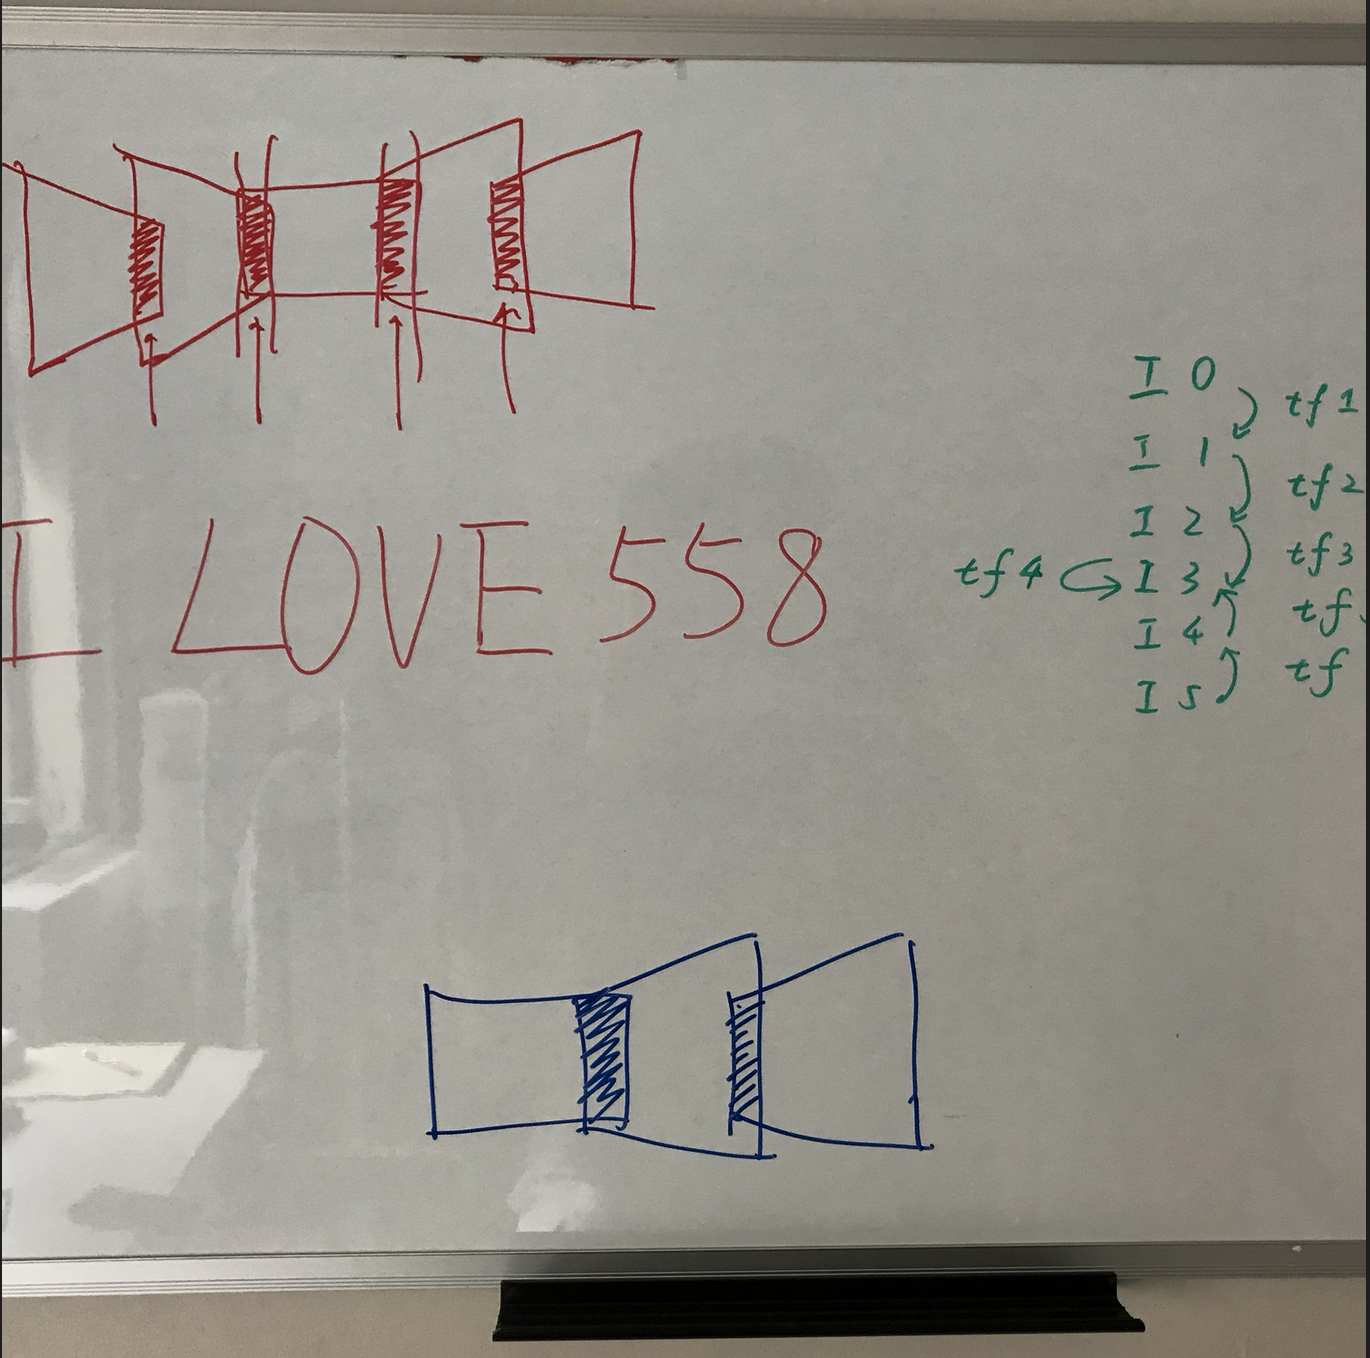 I LOVE 558
I 0
tf 1
I 1
tf 2
I 2
tf 3
tf 4 I 3
tf
I 4
tf
I 5